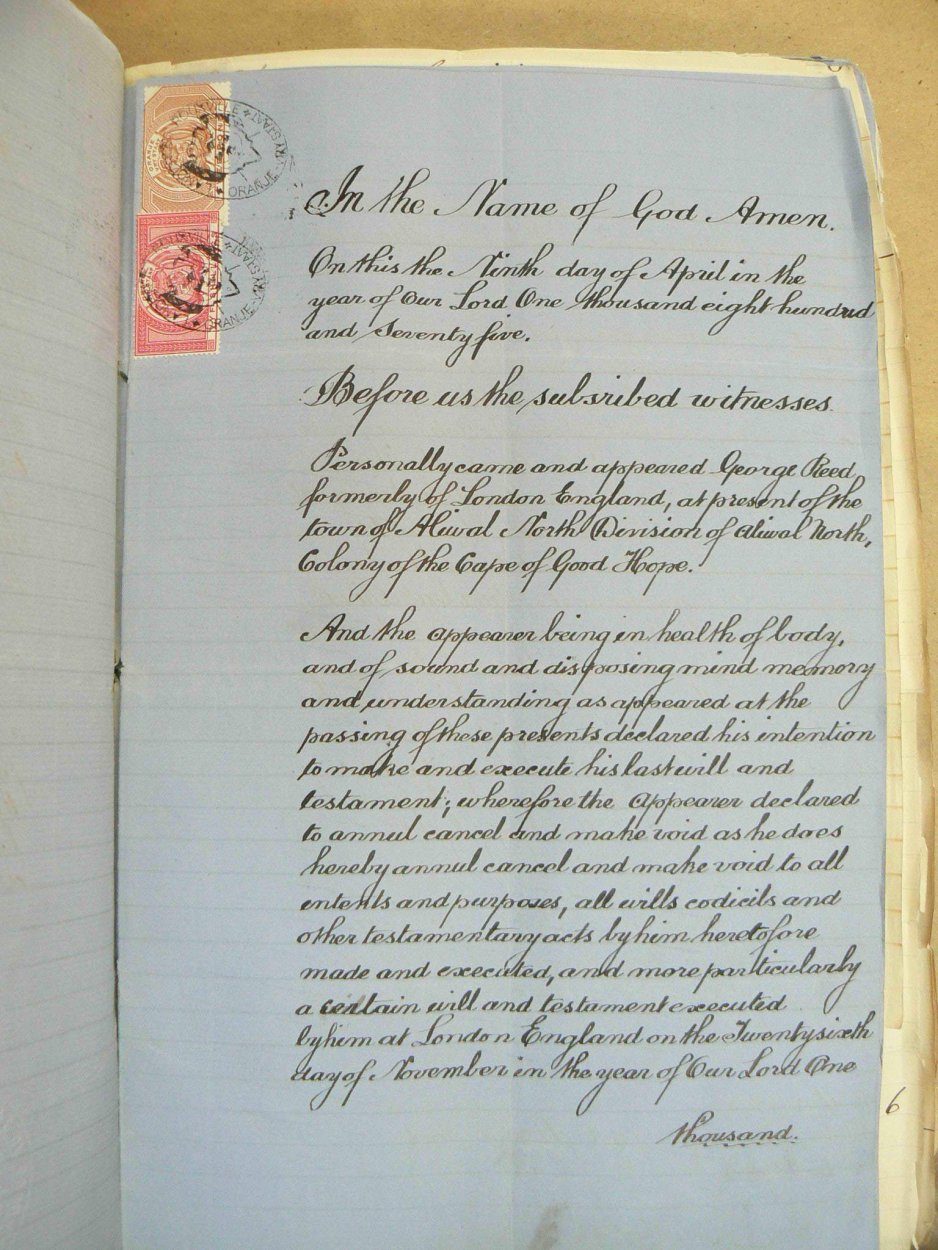 ORANJE VRYSTAAT
ORANJE VRYSTAAT
In the Name of God Amen.
On this the Ninth day of April in the
year of Our Lord One thousand eight hundred
and Seventy five.
Before us the subsribed witnesses
Personally came and appeared George Reed
formerly of London England, at present of the
town of Aliwal North Division of Aliwal North,
Colony of the Cape of Good Hope.
And the appearer being in health of body,
and of sound and disposing mind memory
and understanding as appeared at the
passing of these presents declared his intention
to make and execute his last will and
testament; wherefore the appearer declared
to annul cancel and make void as he does
hereby annul cancel and make void to all
intents and purposes, all wills codicils and
other testamentary acts by him heretofore
made and executed, and more particularly
a certain will and testament executed
by him at London England on the Twenty sixth
day of November in the year of Our Lord One
thousand.
6